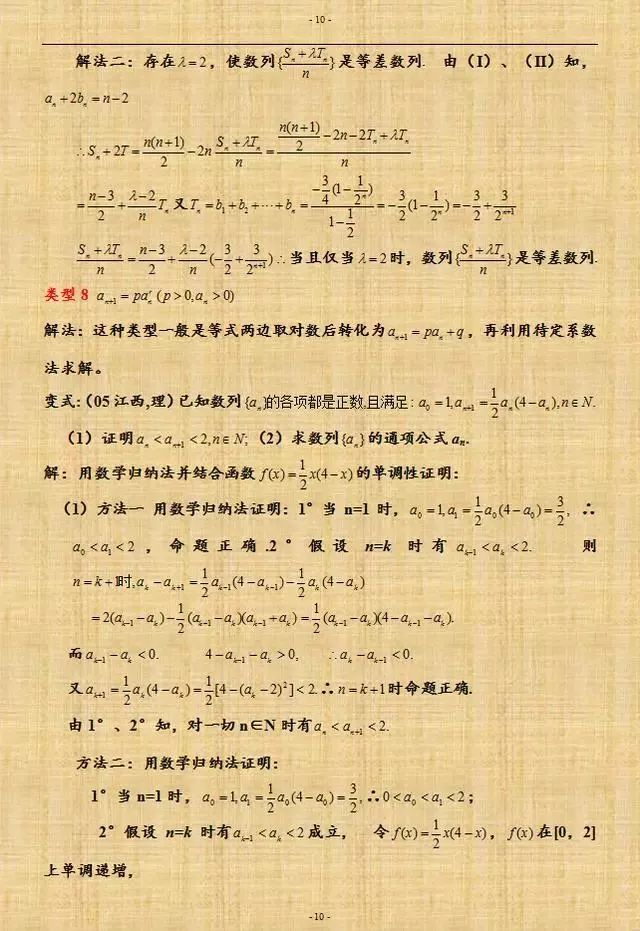 - 10 -
解法二：存在λ=2，使数列{\frac{S_n+λT_n}{n}}是等差数列. 由（Ⅰ）、（Ⅱ）知，
a_n+2b_n=n-2
∴S_n+2T=\frac{n(n+1)}{2}-2n \frac{S_n+λT_n}{n}=\frac{\frac{n(n+1)}{2}-2n-2T_n+λT_n}{n}
=\frac{n-3}{2}+\frac{λ-2}{n}T_n 又T_n=b_1+b_2+⋯+b_n=\frac{-\frac{3}{4}(1-\frac{1}{2^n})}{1-\frac{1}{2}}=-\frac{3}{2}(1-\frac{1}{2^n})=-\frac{3}{2}+\frac{3}{2^{n+1}}
\frac{S_n+λT_n}{n}=\frac{n-3}{2}+\frac{λ-2}{n}(-\frac{3}{2}+\frac{3}{2^{n+1}})∴当且仅当λ=2时，数列{\frac{S_n+λT_n}{n}}是等差数列.
类型8 a_{n+1}=pa_n^r(p>0,a_n>0)
解法：这种类型一般是等式两边取对数后转化为a_{n+1}=pa_n+q，再利用待定系数
法求解。
变式:（05江西,理）已知数列{a_n}的各项都是正数,且满足: a_0=1,a_{n+1}=\frac{1}{2}a_n(4-a_n),n∈N.
（1）证明a_n<a_{n+1}<2,n∈N;（2）求数列{a_n}的通项公式a_n.
解：用数学归纳法并结合函数f(x)=\frac{1}{2}x(4-x)的单调性证明：
（1）方法一 用数学归纳法证明：1°当n=1时，a_0=1,a_1=\frac{1}{2}a_0(4-a_0)=\frac{3}{2}, ∴
a_0<a_1<2，命题正确.2°假设n=k时有a_{k-1}<a_k<2. 则
n=k+1时,a_k-a_{k+1}=\frac{1}{2}a_{k-1}(4-a_{k-1})-\frac{1}{2}a_k(4-a_k)
=2(a_{k-1}-a_k)-\frac{1}{2}(a_{k-1}-a_k)(a_{k-1}+a_k)=\frac{1}{2}(a_{k-1}-a_k)(4-a_{k-1}-a_k).
而a_{k-1}-a_k<0. 4-a_{k-1}-a_k>0, ∴a_k-a_{k-1}<0.
又a_{k+1}=\frac{1}{2}a_k(4-a_k)=\frac{1}{2}[4-(a_k-2)^2]<2.∴n=k+1时命题正确.
由1°、2°知，对一切n∈N时有a_n<a_{n+1}<2.
方法二：用数学归纳法证明：
1°当n=1时，a_0=1,a_1=\frac{1}{2}a_0(4-a_0)=\frac{3}{2},∴0<a_0<a_1<2；
2°假设n=k时有a_{k-1}<a_k<2成立， 令f(x)=\frac{1}{2}x(4-x)，f(x)在[0，2]
上单调递增，
- 10 -